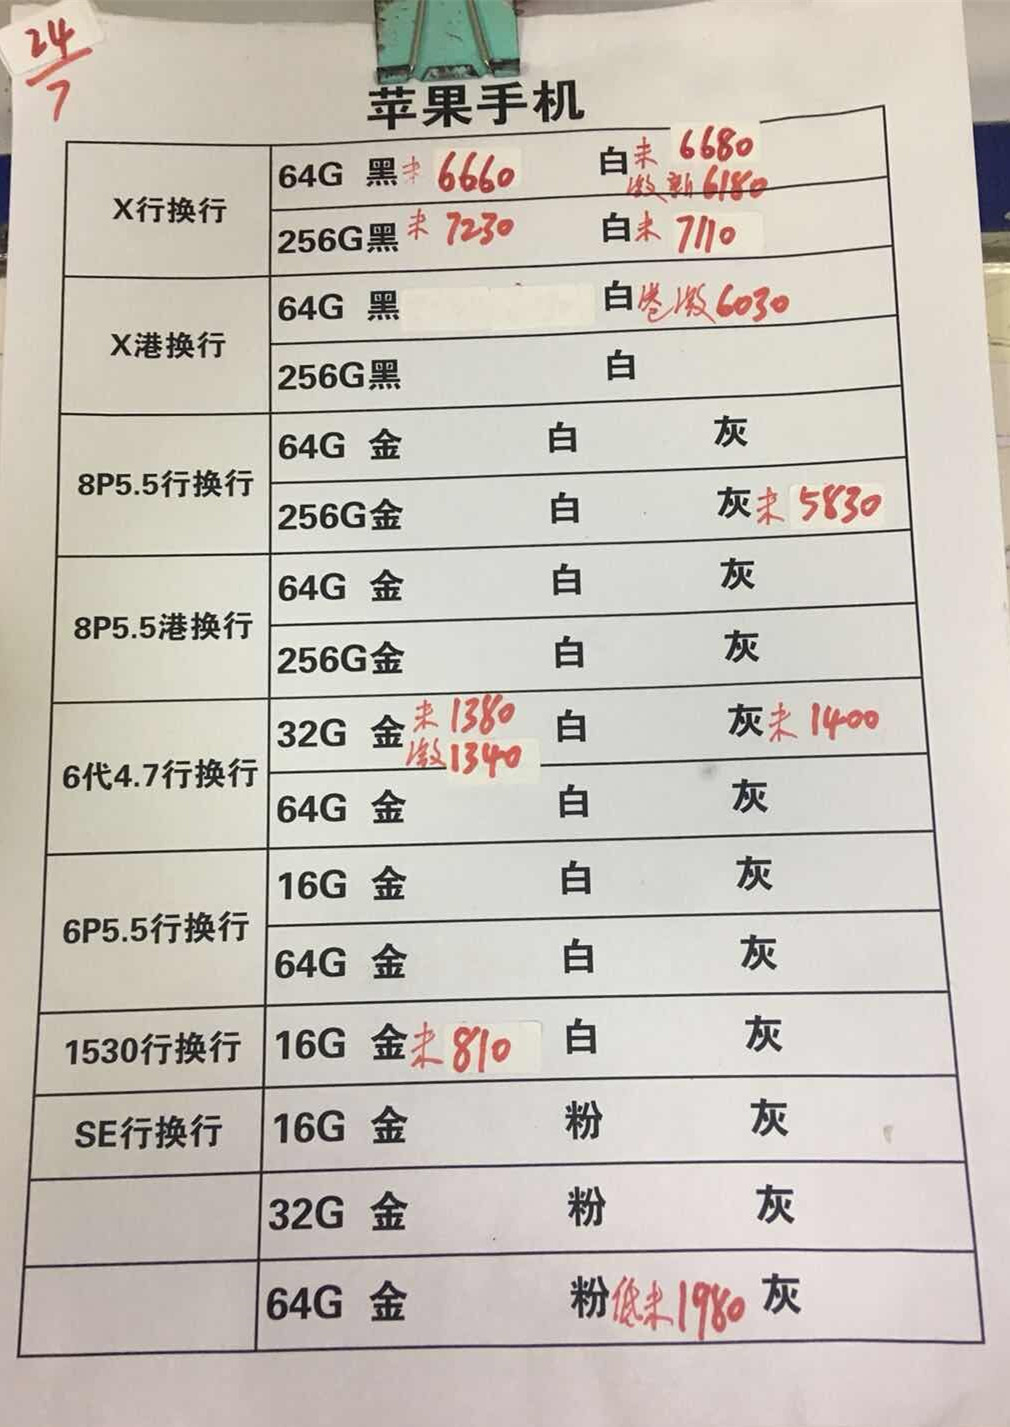 24
7
苹果手机
X行换行
64G 黑未 6660 白未 6680
激新6180
256G黑未 7230 白未 7110
X港换行
64G 黑 白港激6030
256G黑 白
8P5.5行换行
64G 金 白 灰
256G金 白 灰未 5830
8P5.5港换行
64G 金 白 灰
256G金 白 灰
6代4.7行换行
32G 金未1380 白 灰未1400
激1340
64G 金 白 灰
6P5.5行换行
16G 金 白 灰
64G 金 白 灰
1530行换行
16G 金未810 白 灰
SE行换行
16G 金 粉 灰
32G 金 粉 灰
64G 金 粉低未1980 灰